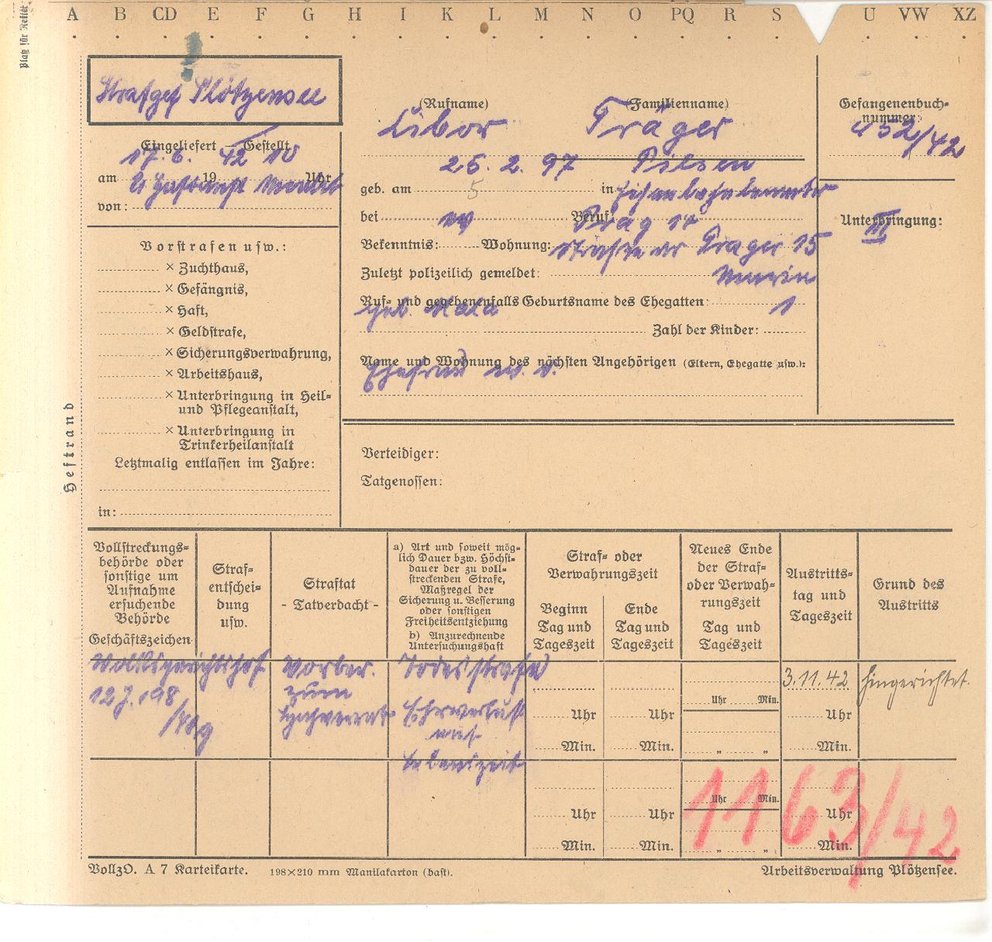 A B CD E F G H I K L M N O PQ R S U VW XZ
Strafgef Plötzensee
(Rufname) (Familienname)
Libor Träger
Gefangenenbuch-
nummer:
452/42
Eingeliefert Gestellt
17. 6. 42 10
am 19 Uhr
von:
25. 2. 97 Pilsen
geb. am 5 in Eisenbahnbeamter
bei Beruf: Prag 17
Bekenntnis: Wohnung:
Prager 15
Zuletzt polizeilich gemeldet:
Marie
Ruf- und gegebenenfalls Geburtsname des Ehegatten:
geb. 1
Zahl der Kinder:
Name und Wohnung des nächsten Angehörigen (Eltern, Ehegatte usw.):
Ehefrau w. o.
Unterbringung:
III
Vorstrafen usw.:
× Zuchthaus,
× Gefängnis,
× Haft,
× Geldstrafe,
× Sicherungsverwahrung,
× Arbeitshaus,
× Unterbringung in Heil-
und Pflegeanstalt,
× Unterbringung in
Trinkerheilanstalt
Letztmalig entlassen im Jahre:
in:
Heftrand
Verteidiger:
Tatgenossen:
Vollstreckungs-
behörde oder
sonstige um
Aufnahme
ersuchende
Behörde
Geschäftszeichen
Straf-
entschei-
dung
usw.
Straftat
- Tatverdacht -
a) Art und soweit mög-
lich Dauer bzw. Höchst-
dauer der zu voll-
streckenden Strafe,
Maßregel der
Sicherung u. Besserung
oder sonstigen
Freiheitsentziehung
b) Anzurechnende
Untersuchungshaft
Straf- oder
Verwahrungszeit
Beginn
Tag und
Tageszeit
Ende
Tag und
Tageszeit
Neues Ende
der Straf-
oder Verwah-
rungszeit
Tag und
Tageszeit
Austritts-
tag und
Tageszeit
Grund des
Austritts
Volksgerichtshof
12 J. 198
Vorber.
zum
Hochverrat
Todesstrafe
Ehrverlust
auf
Lebenszeit
3.11.42 hingerichtet
Uhr Min.
Uhr Uhr Uhr
Min. Min. „ „ Min.
Uhr Min.
Uhr Uhr Uhr
Min. Min. „ „ Min.
1163/42
VollzO. A 7 Karteikarte. 198×210 mm Manilakarton (haft).
Arbeitsverwaltung Plötzensee.